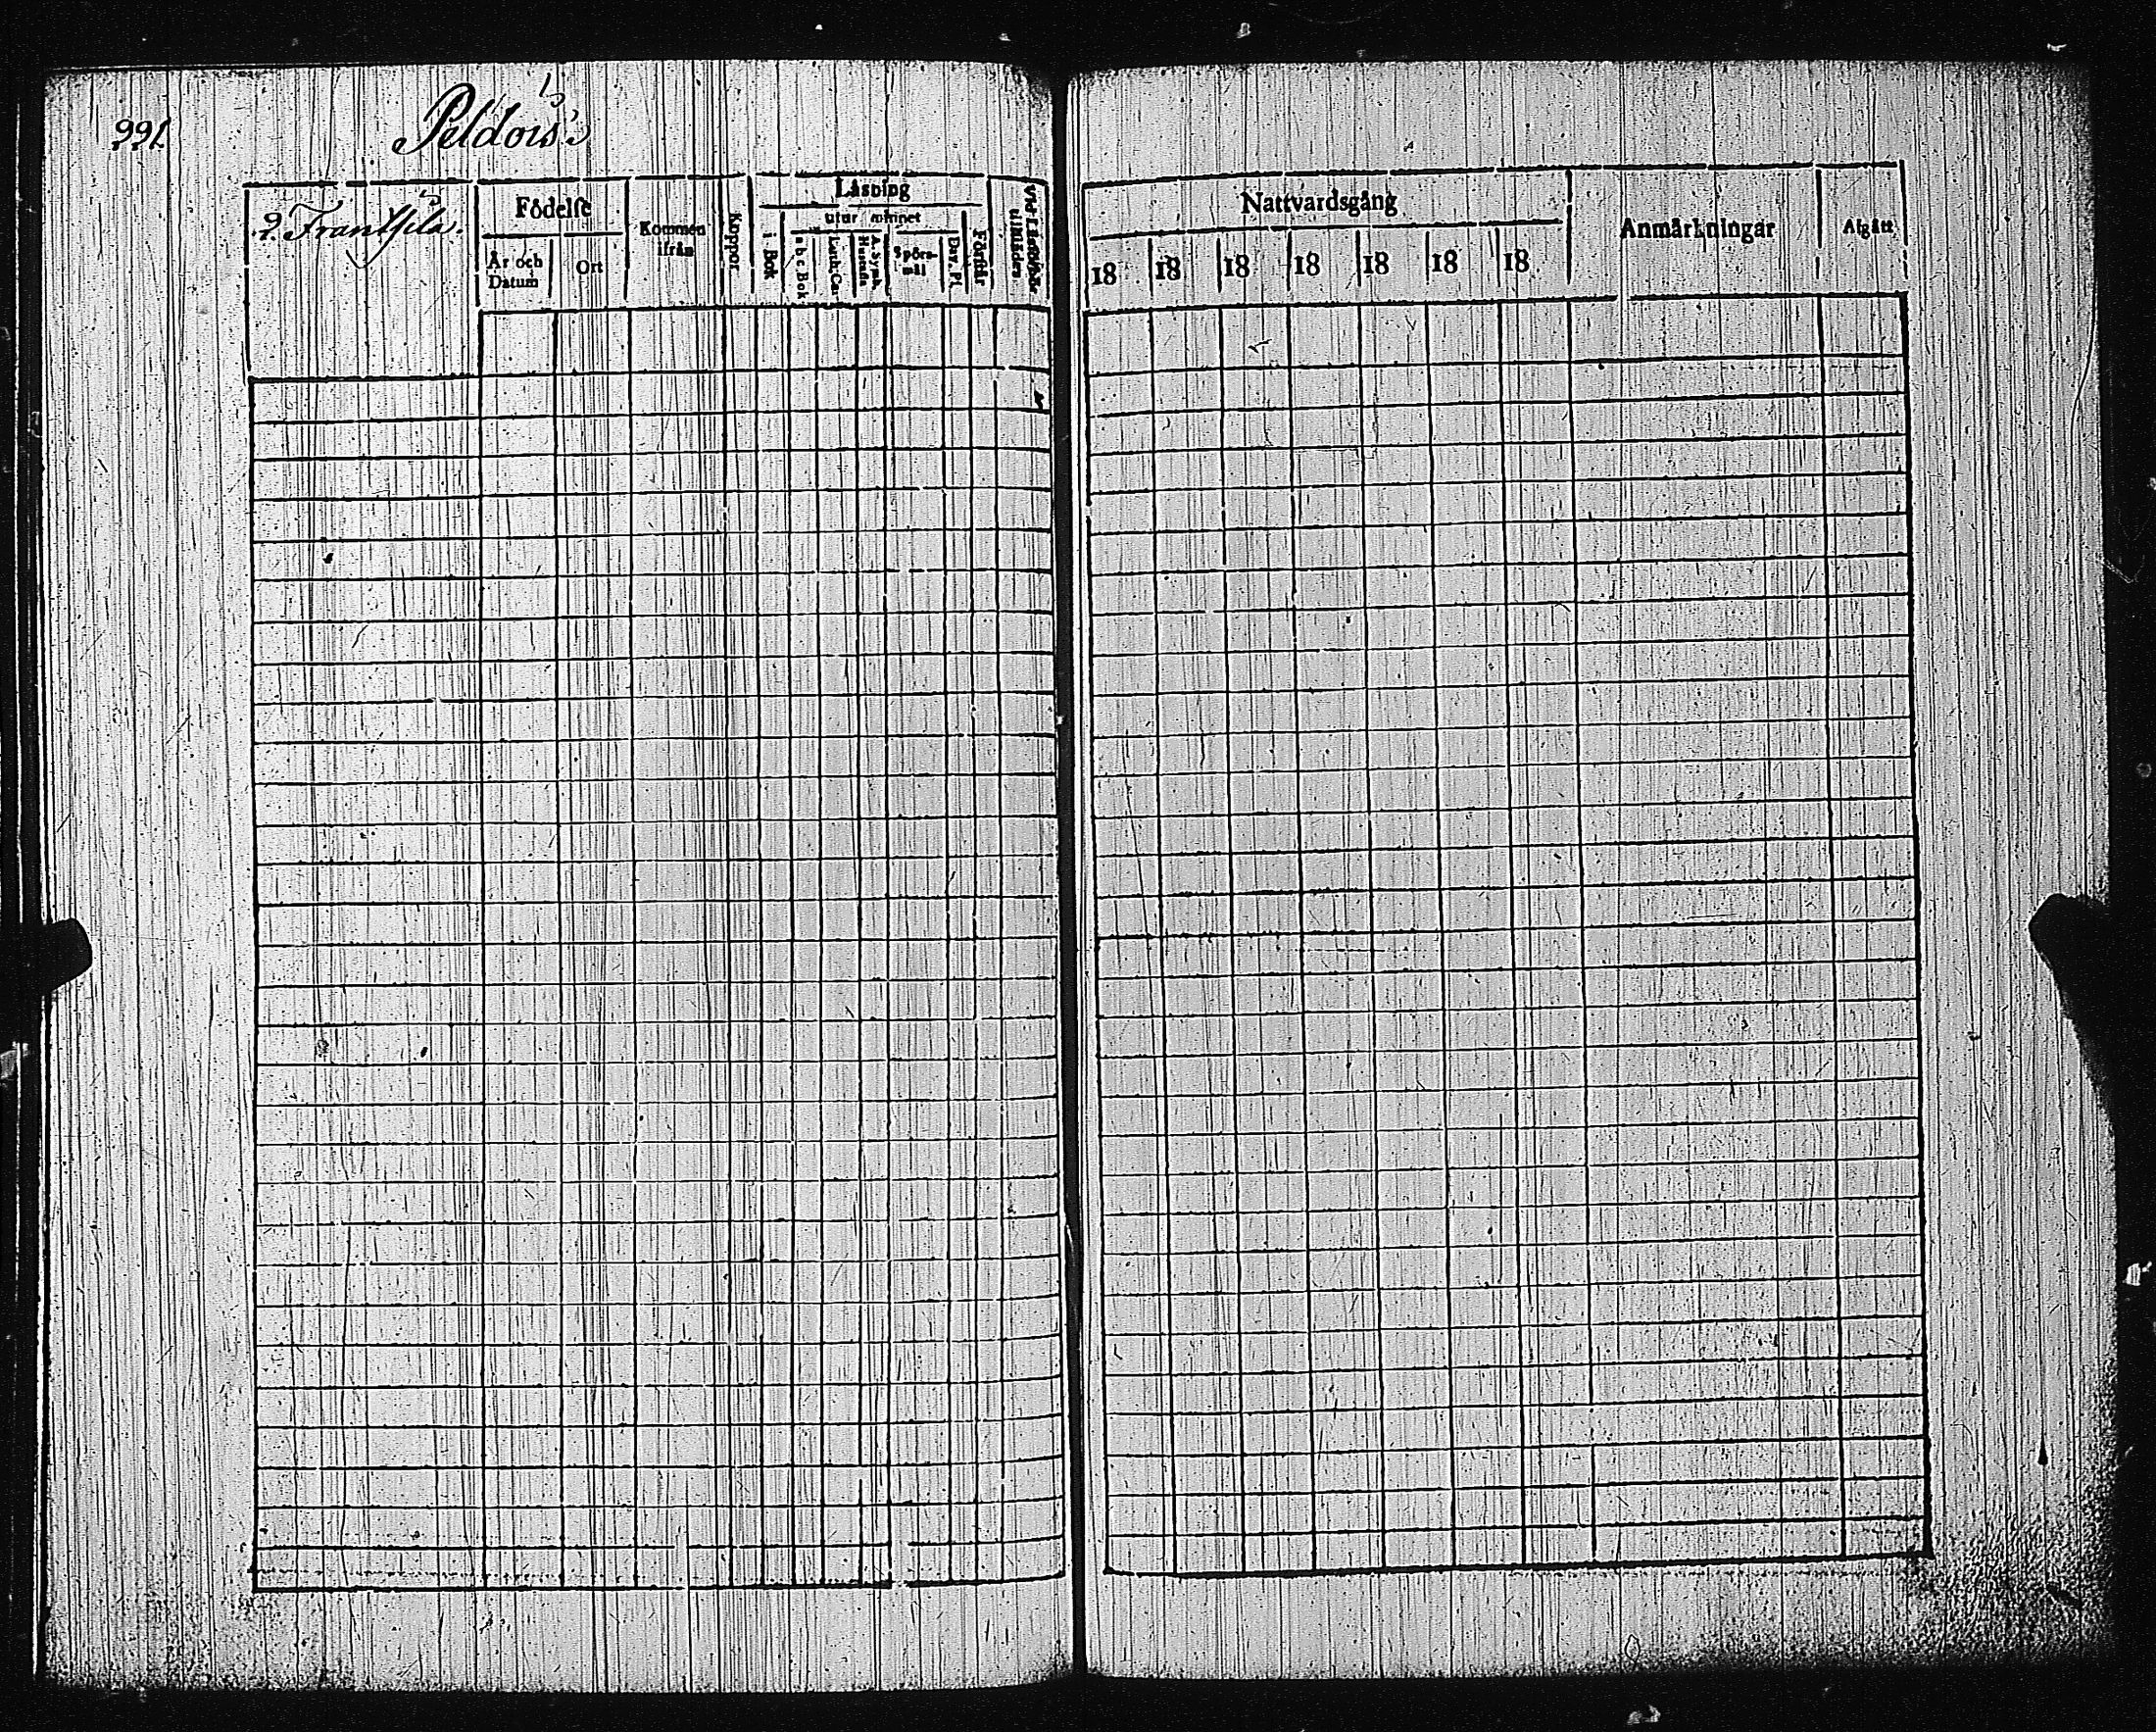 991
Peldois:
2. Frantsila.
Födelse
År och Datum
Ort
Kommen ifrån
Koppor
Läsning
i Bok
utur minnet
a b c Bok
Luth. Cat.
A. Symb. Hustafla
Spörsmål
Dav. Ps.
Förstår
Vid Läsförhör tillstädes
Nattvardsgång
18 18 18 18 18 18 18
Anmärkningar
Afgått